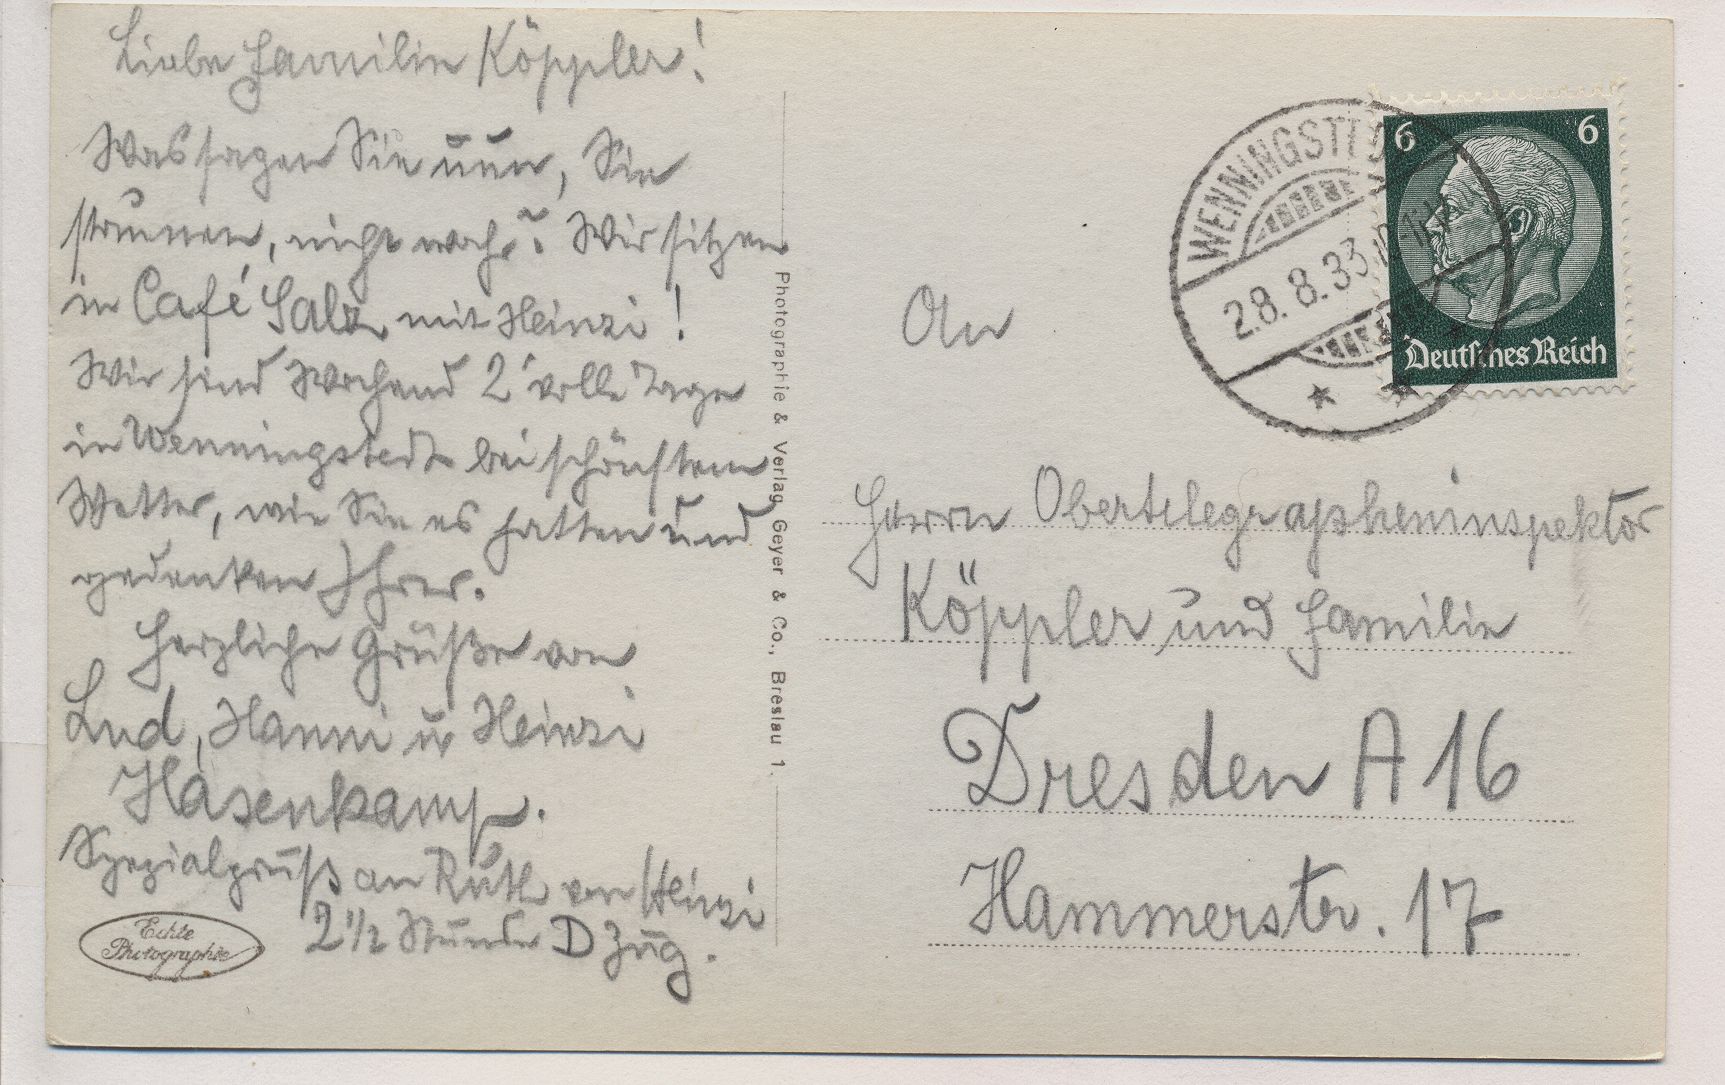 Liebe Familie Köppler!
Was sagen Sie nun, Sie
staunen, nicht wahr? Wir sitzen
in Café Salz mit Heinzi!
Wir sind 2 volle Tage
in Wenningstedt bei schönstem
Wetter, wie Sie es hatten und
gedenken Ihrer.
Herzliche Grüße von
Lud, Hanni u Heinzi
Hasenkamp.
Spezialgruß an Ruth von Heinzi
2 1/2 Stunde D Zug.
Echte
Photographie
Photographie & Verlag Geyer & Co., Breslau 1.
WENNINGSTED
28.8.33
6 6
Deutsches Reich
An
Herrn Obertelegrapheninspektor
Köppler und Familie
Dresden A 16
Hammerstr. 17